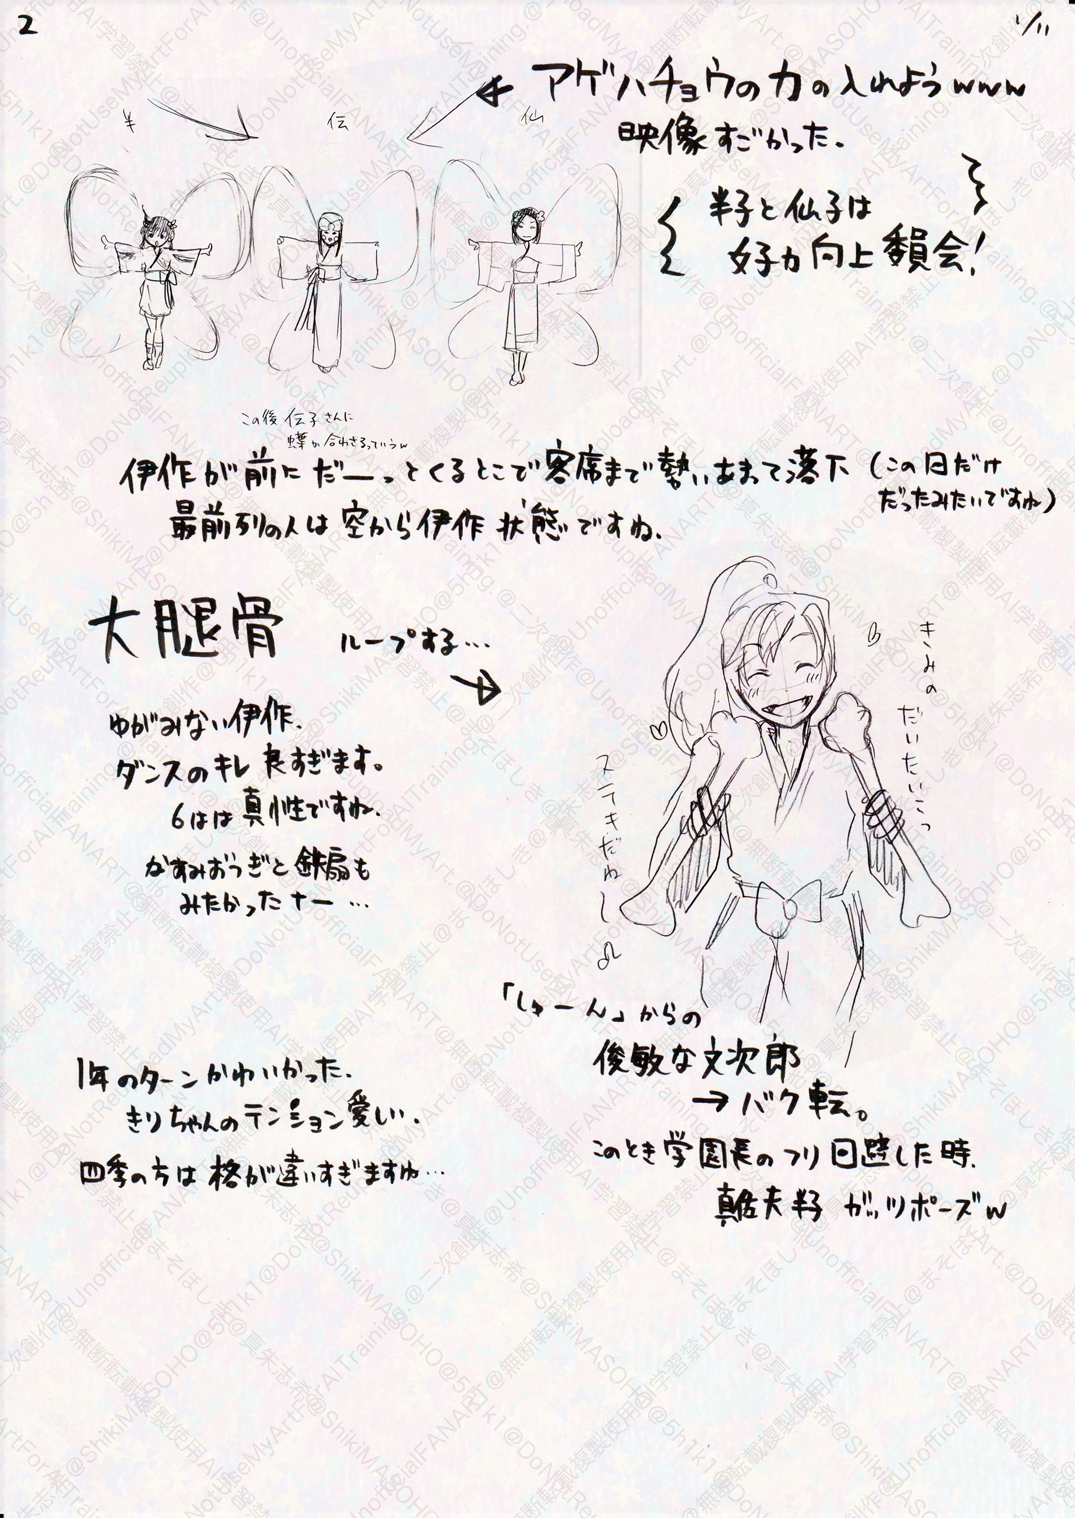 2
1/11
アゲハチョウの力の入れようwww
映像すごかった。
半
伝
仙
半子と仙子は
女子力向上委員会!
この後 伝子さんに
蝶が合わさるっていうw
伊作が前にだーっとくるとこで客席まで勢いあまって落下(この日だけ
だったみたいですね)
最前列の人は空から伊作状態ですね。
大腿骨
ループする…
ゆがみない伊作。
ダンスのキレ良すぎます。
6はは真性ですね。
かすみおうぎと鉄扇も
みたかったナー…
きみの
だいたいこつ
ステキだねー♪
「しゅーん」からの
俊敏な文次郎
→バク転。
このとき学園長のフリ回避した時、
真佐夫半子 ガッツポーズw
1年のターンかわいかった。
きりちゃんのテンション愛しい。
四季の方は格が違いすぎますね…